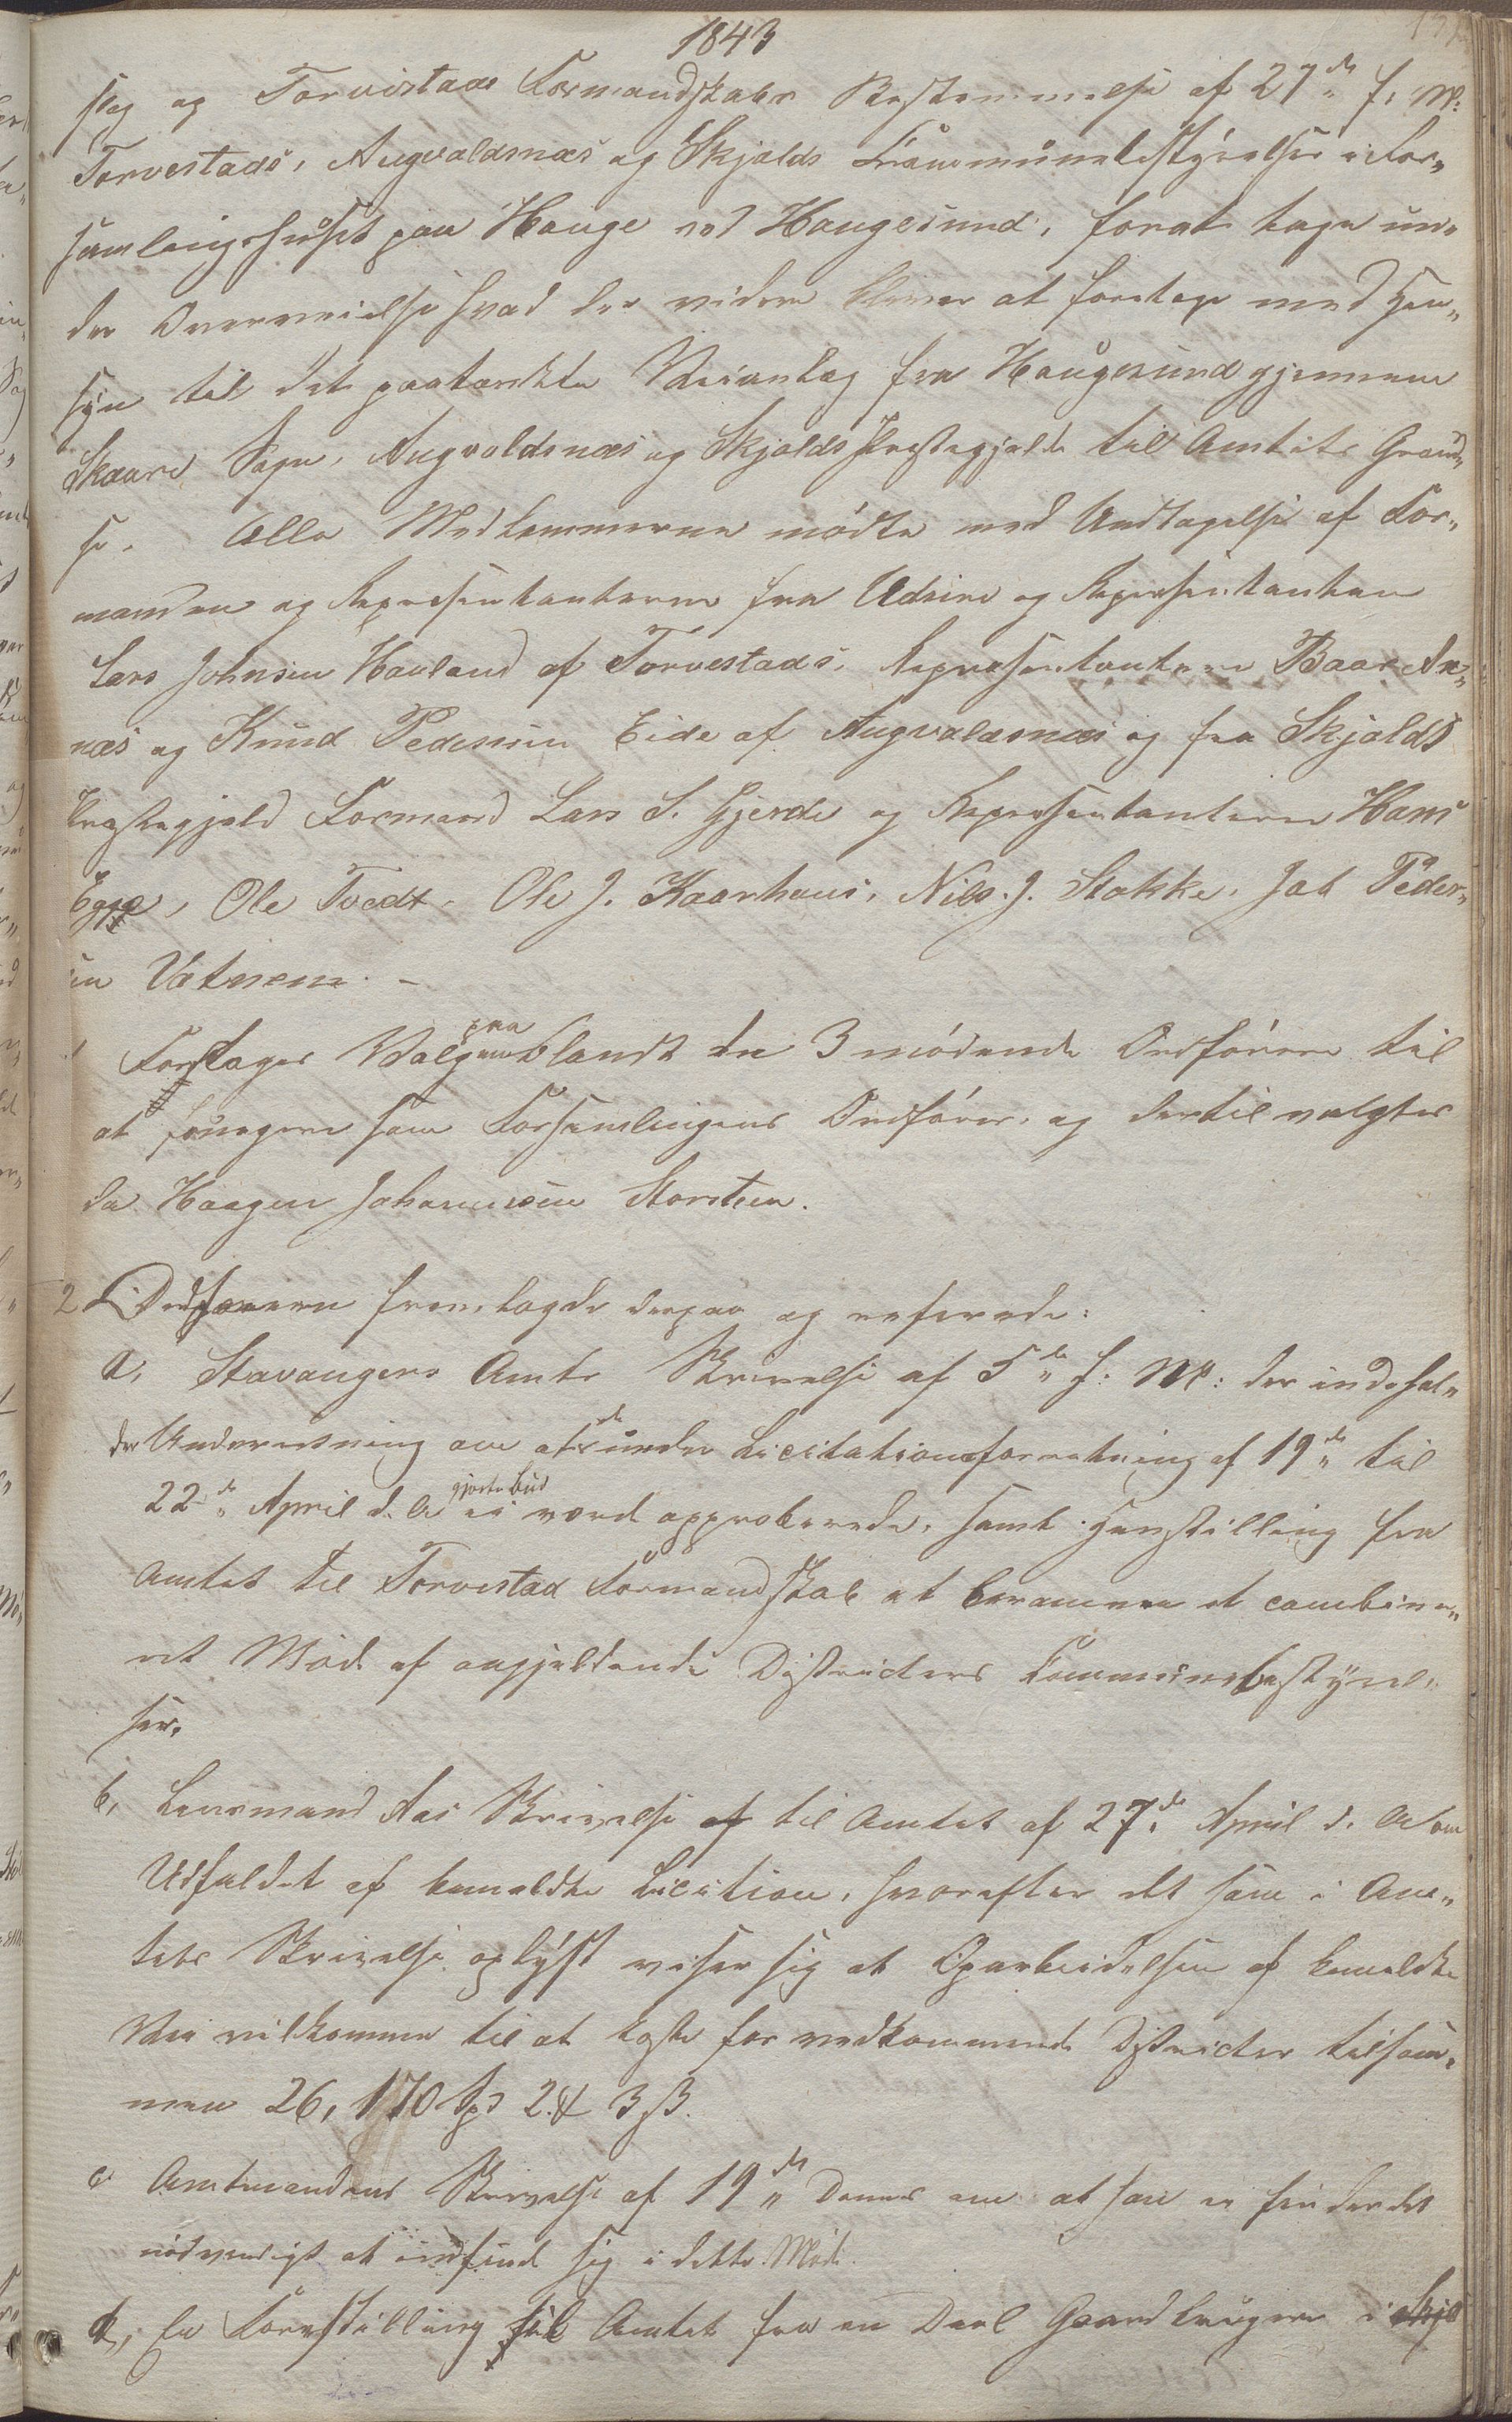 1843
slag og Torvestads Formandskabs Bestemmelse af 27de f. M:
Torvestads, Augvaldsnæs og Skjolds Communebestyrelser i For„
samlingshuset paa Hauge ved Haugesund, forat tage un„
der Overveielse hvad der videre bliver at foretage med Hen„
syn til det paatænkte Veianlæg fra Haugesund gjennem
Skaare Sogn, Augvaldsnæs og Skjolds Præstegjelde til Amtets Grænd„
se. Alle Medlemmerne mødte med Undtagelse af For„
manden og Repræsentanterne fra Udsire og Repræsentanten
Lars Johnsen Havland af Torvestads, Repræsentanterne Baar
næs og Knud Pedersen Eide af Augvaldsnæs og fra Skjolds
Præstegjeld Formand Lars S. Gjerde og Repræsentanterne Hans
Egge, Ole Tvedt, Ole J. Kaarhuus, Nils J. Stakke, Job Peder„
sen Vatnem. –
1 Foretages Valg paa en blandt de 3 mødende Ordførere til
at fungere som Forsamlingens Ordfører, og dertil valgtes
da Haagen Johannesen Storsteen.
2 Ordføreren fremlagde derpaa og referede:
a, Stavangers Amts Skrivelse af 5te f. M: der indehol„
der Underretning om at de under Licitationsforretning af 19de til
22de April d. A gjorte Bud ei vord approberede, samt Henstilling fra
Amtet til Torvestad Formandskab at beramme et combine„
ret Møde af angjeldende Districters Communebestyrel„
ser.
b, Lensmand Aas Skrivelse af til Amtet af 27de April d. A om
Udfaldet af bemeldte Licition, hvorefter det som i Am„
tets Skrivelse oplyst viser sig at Oparbeidelsen af bemeldte
Vei vilkomme til at koste for vedkommende Districter tilsam„
men 26,170 Spd 2 ₰ 3 ß.
c Amtmandens Skrivelse af 19de Dennes om at han ei finder det
nødvendigt at indfind sig i dette Møde.
d, En Forestilling til Amtet fra en Deel Gaardbrugere i Skjo